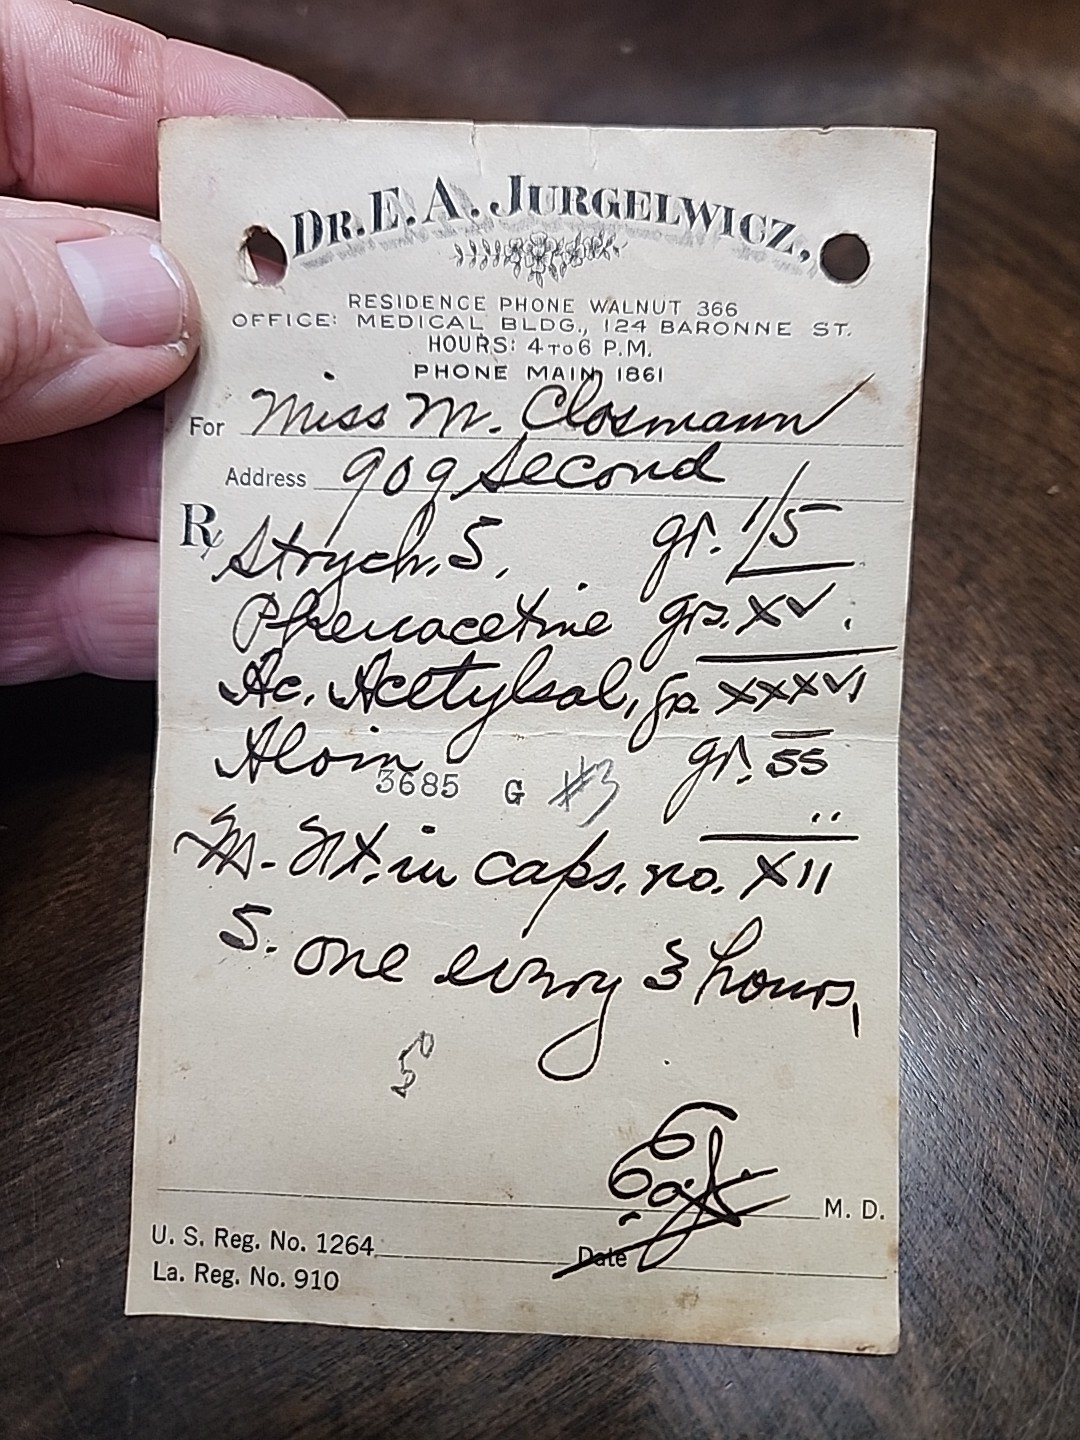 DR. E. A. JURGELWICZ,
RESIDENCE PHONE WALNUT 366
OFFICE: MEDICAL BLDG., 124 BARONNE ST.
HOURS: 4 TO 6 P.M.
PHONE MAIN 1861
For Miss M. Closmann
Address 909 Second
Rx Strych. S. gr. 1/5
Phenacetine grs. XV.
Ac. Acetylsal, grs. XXXVI
Aloin gr. ss
3685 G #3
M. Ft. in caps. no. XII
S. one every 3 hours,
50
M. D.
U. S. Reg. No. 1264 Date
La. Reg. No. 910